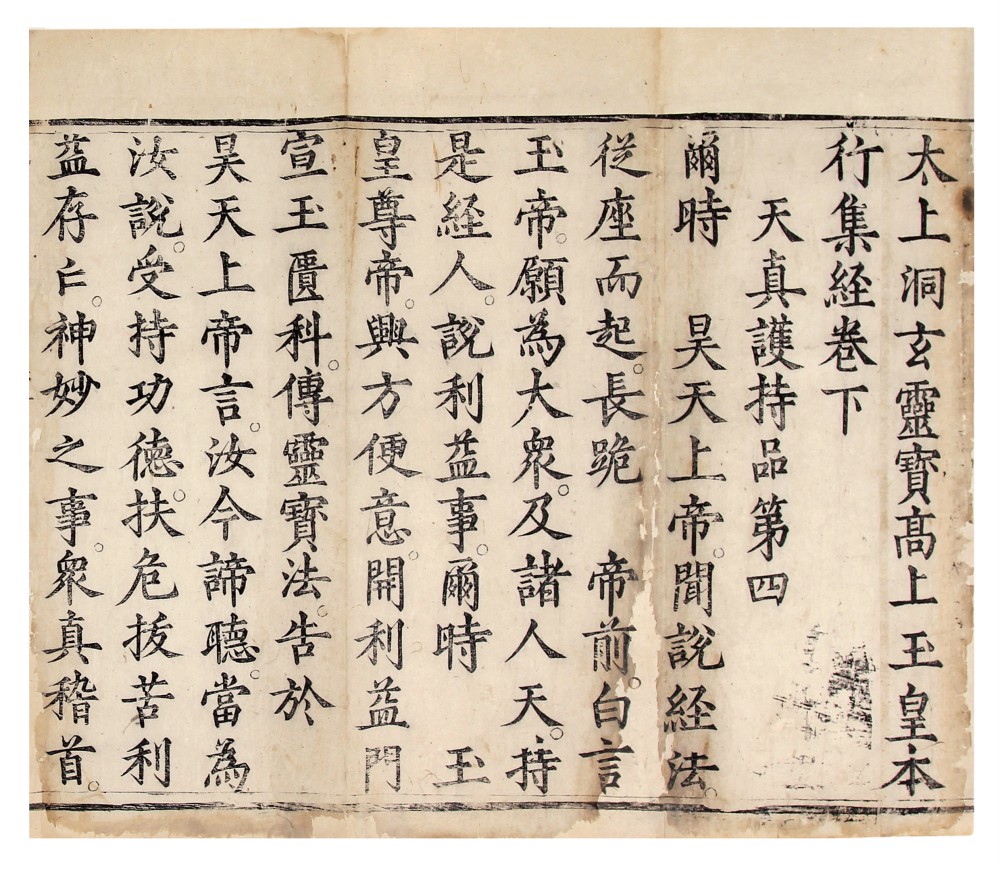 太上洞玄靈寶高上玉皇本
行集經卷下
天真護持品第四
爾時　昊天上帝。聞說經法。
從座而起。長跪　帝前。白言
玉帝。願為大衆。及諸人天。持
是經人。說利益事。爾時　玉
皇尊帝。興方便意。開利益門
宣玉匱科。傳靈寶法。告於
昊天上帝言。汝今諦聽。當為
汝說。受持功德。扶危拔苦利
益存亡。神妙之事。衆真稽首。